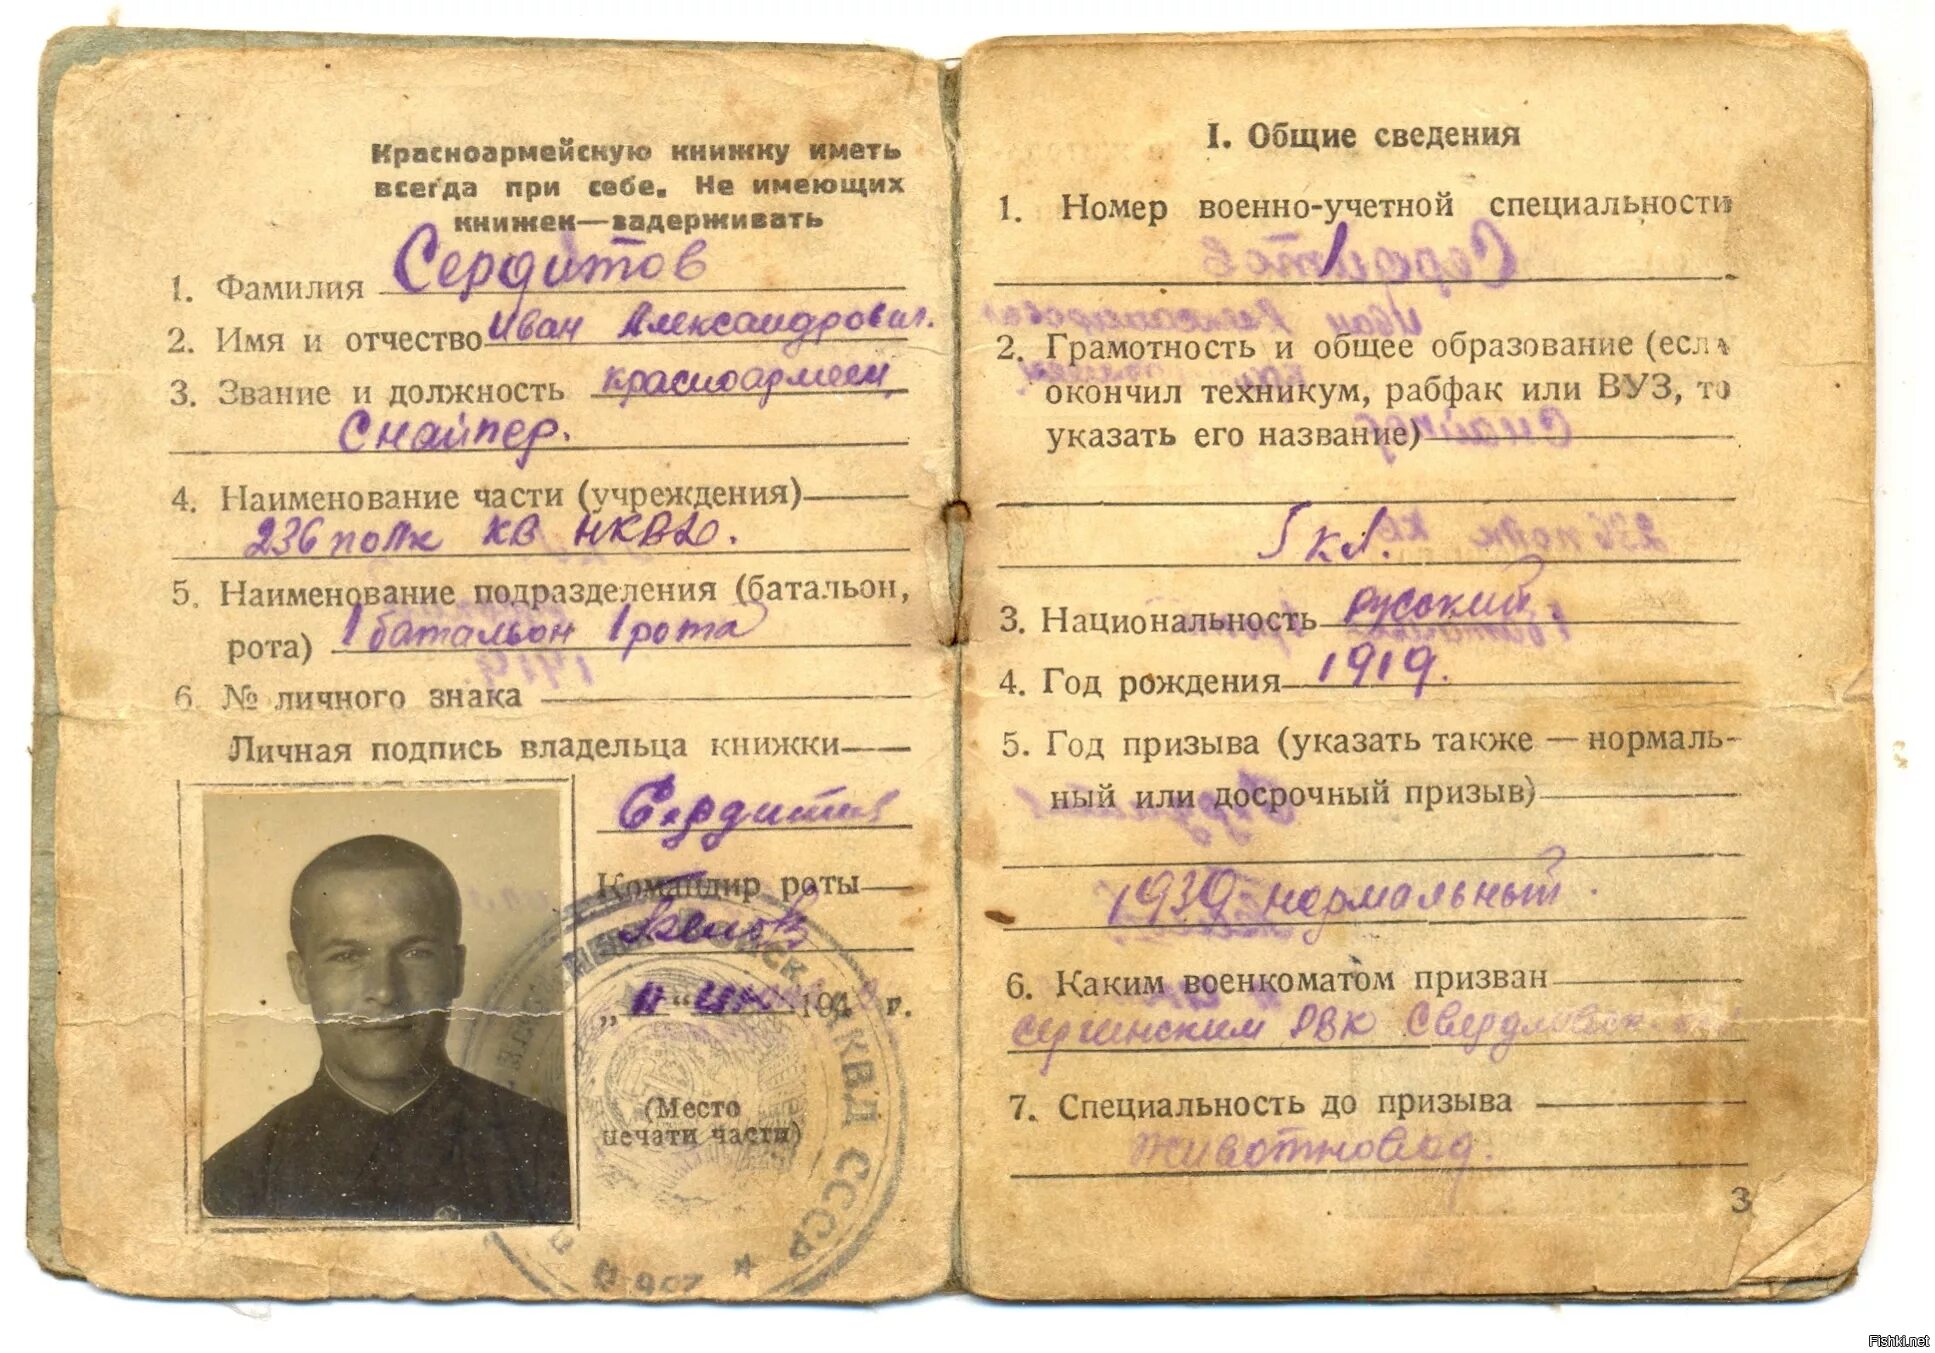 Красноармейскую книжку иметь
всегда при себе. Не имеющих
книжек—задерживать
1. Фамилия Сердитов
2. Имя и отчество Иван Александрович.
3. Звание и должность красноармеец,
Снайпер.
4. Наименование части (учреждения)
236 полк КВ НКВД.
5. Наименование подразделения (батальон,
рота) 1 батальон 1 рота
6. № личного знака
Личная подпись владельца книжки
Сердитов
Командир роты
„11“ 194 г.
(Место
печати части)
НКВД СССР
I. Общие сведения
1. Номер военно-учетной специальности
1
2. Грамотность и общее образование (если
окончил техникум, рабфак или ВУЗ, то
указать его название)
5 кл.
3. Национальность русский
4. Год рождения 1919.
5. Год призыва (указать также — нормаль-
ный или досрочный призыв)
1939 нормальный.
6. Каким военкоматом призван
Сергинским РВК
7. Специальность до призыва
Животновод.
3
Fishki.net